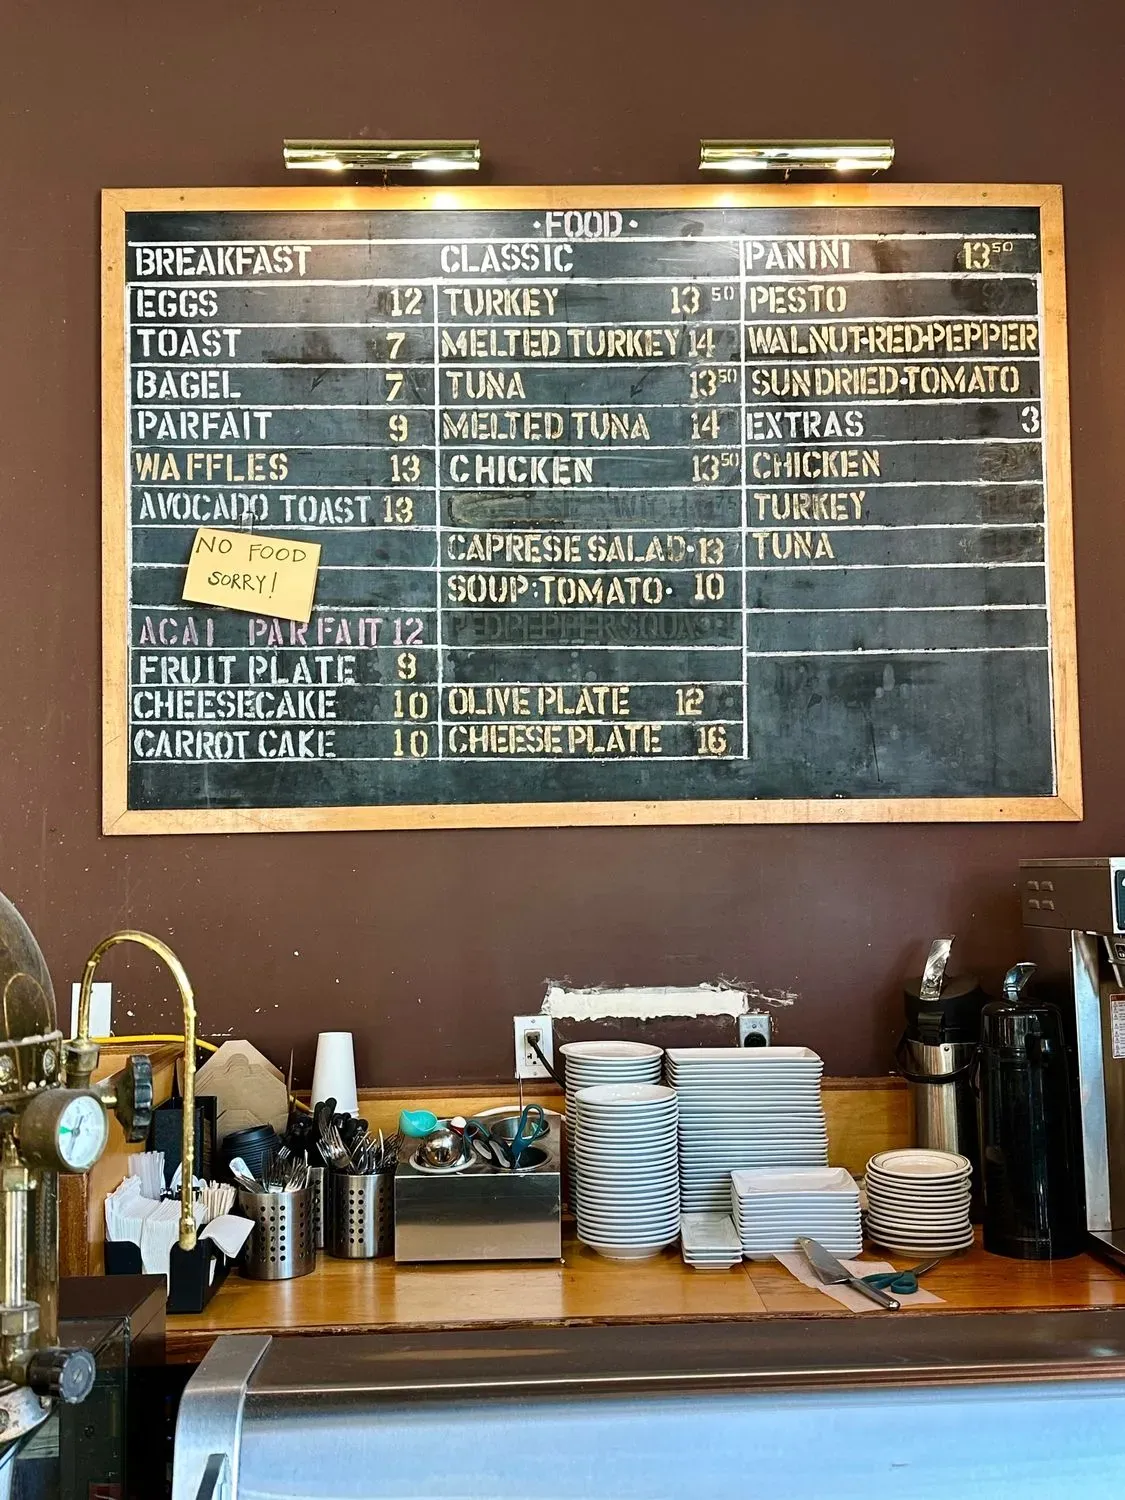 ·FOOD·
BREAKFAST
EGGS 12
TOAST 7
BAGEL 7
PARFAIT 9
WAFFLES 13
AVOCADO TOAST 13
NO FOOD
SORRY!
ACAI PARFAIT 12
FRUIT PLATE 9
CHEESECAKE 10
CARROT CAKE 10
CLASSIC
TURKEY 13 50
MELTED TURKEY 14
TUNA 13 50
MELTED TUNA 14
CHICKEN 13 50
CAPRESE SALAD·13
SOUP:TOMATO· 10
OLIVE PLATE 12
CHEESE PLATE 16
PANINI 13 50
PESTO
WALNUT·RED·PEPPER
SUNDRIED·TOMATO
EXTRAS 3
CHICKEN
TURKEY
TUNA